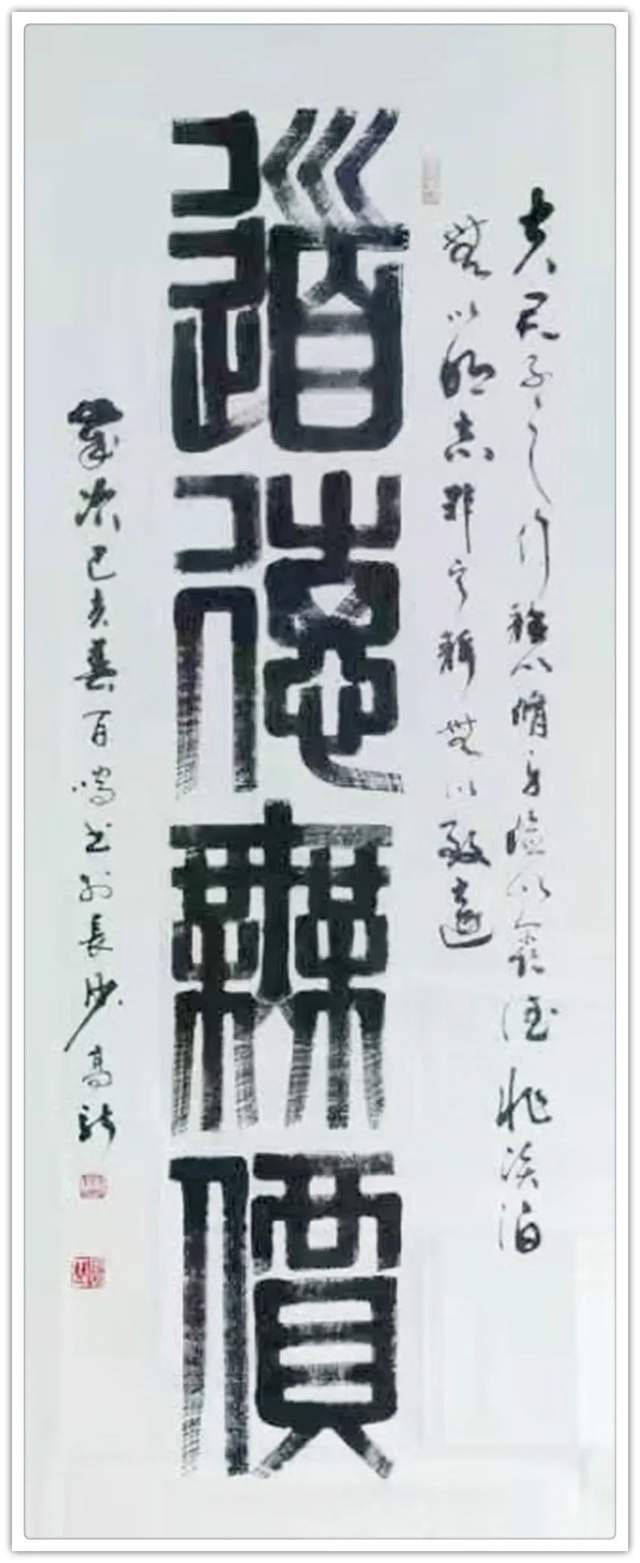 夫君子之行靜以脩身儉以養德非淡泊
無以明志非寧靜無以致遠
道德無價
歲次己亥春百鳴书於長沙高